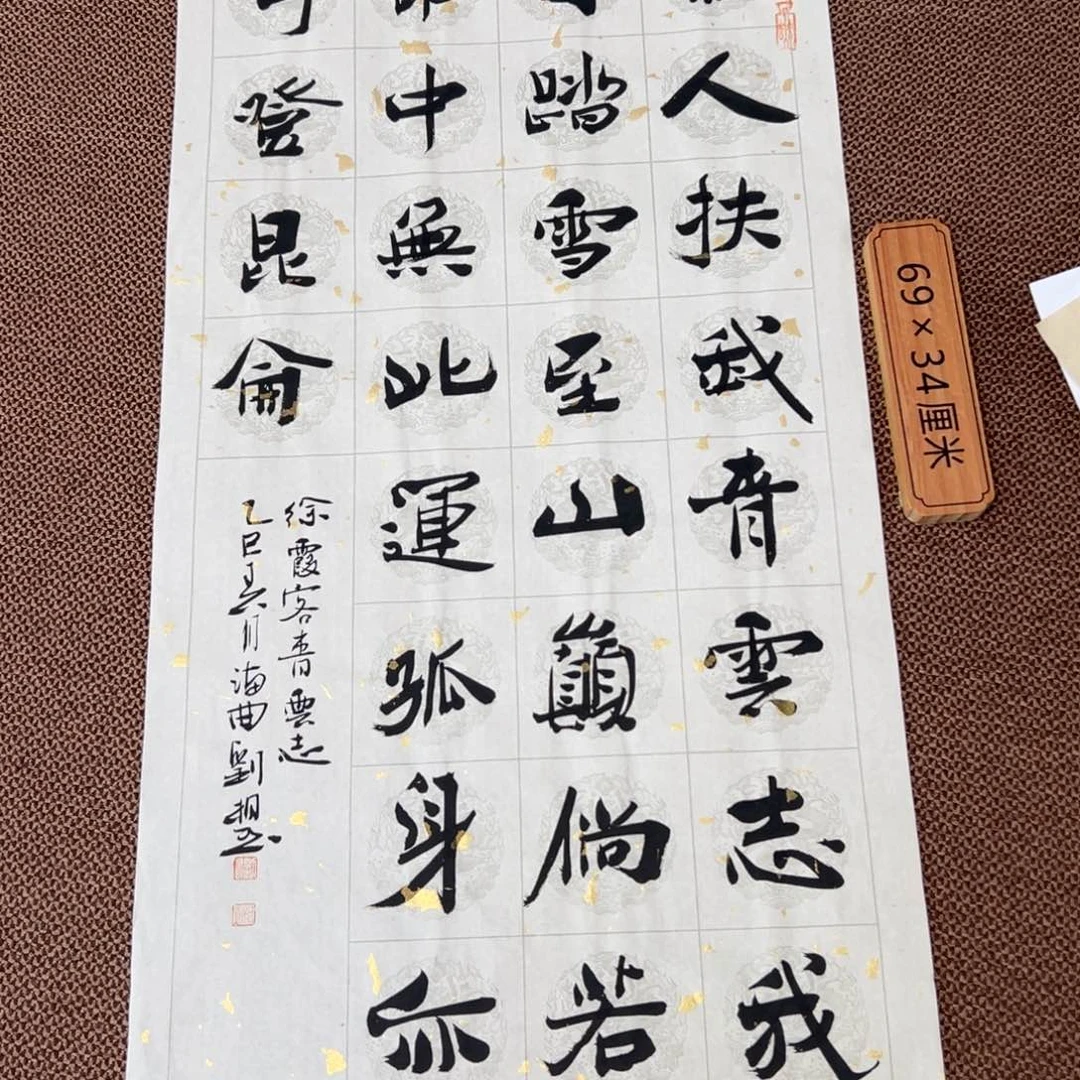 人扶我青雲志我
踏雪至山巔倘若
中無此運孤身亦
可登昆侖
徐霞客青雲志
乙巳 月海曲劉
69×34厘米